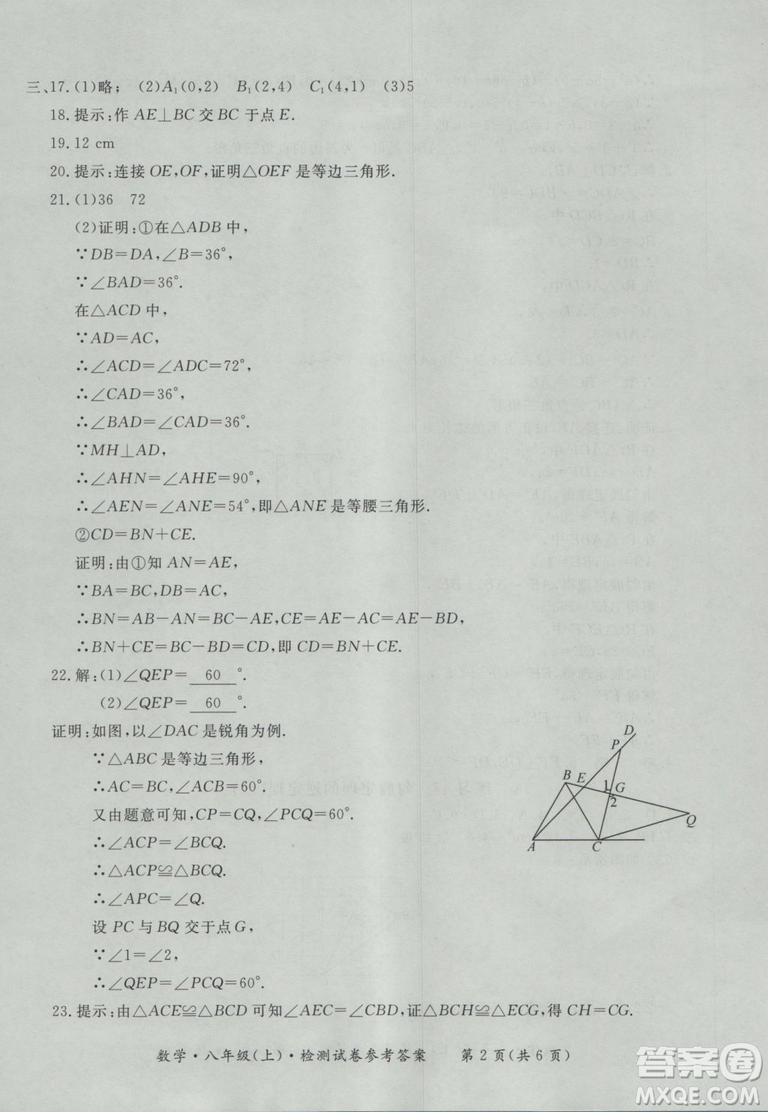 三、17.(1)略; (2)A₁(0,2) B₁(2,4) C₁(4,1) (3)5
18.提示:作 AE⊥BC 交 BC 于点 E.
19.12 cm
20.提示:连接 OE,OF,证明△OEF 是等边三角形.
21.(1)36 72
(2)证明:①在△ADB 中,
∵DB=DA,∠B=36°,
∵∠BAD=36°.
在△ACD 中,
∵AD=AC,
∴∠ACD=∠ADC=72°,
∴∠CAD=36°.
∴∠BAD=∠CAD=36°.
∵MH⊥AD,
∴∠AHN=∠AHE=90°,
∴∠AEN=∠ANE=54°,即△ANE 是等腰三角形.
②CD=BN+CE.
证明:由①知 AN=AE,
∵BA=BC,DB=AC,
∴BN=AB-AN=BC-AE,CE=AE-AC=AE-BD,
∴BN+CE=BC-BD=CD,即 CD=BN+CE.
22.解:(1)∠QEP= 60 °.
(2)∠QEP= 60 °.
证明:如图,以∠DAC 是锐角为例.
∵△ABC 是等边三角形,
∴AC=BC,∠ACB=60°.
又由题意可知,CP=CQ,∠PCQ=60°.
∴∠ACP=∠BCQ.
∴△ACP≌△BCQ.
∴∠APC=∠BQC.
设 PC 与 BQ 交于点 G,
∵∠1=∠2,
∴∠QEP=∠PCQ=60°.
D
P
B E 1 G
2
Q
A C
23.提示:由△ACE≌△BCD 可知∠AEC=∠CBD,证△BCH≌△ECG,得 CH=CG.
数学·八年级(上)·检测试卷参考答案 第 2 页(共 6 页)
答案圈
MXQE.COM